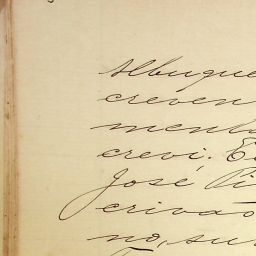 Albuque
creven
mento
crevi. E
José Pi
crivão
no, su